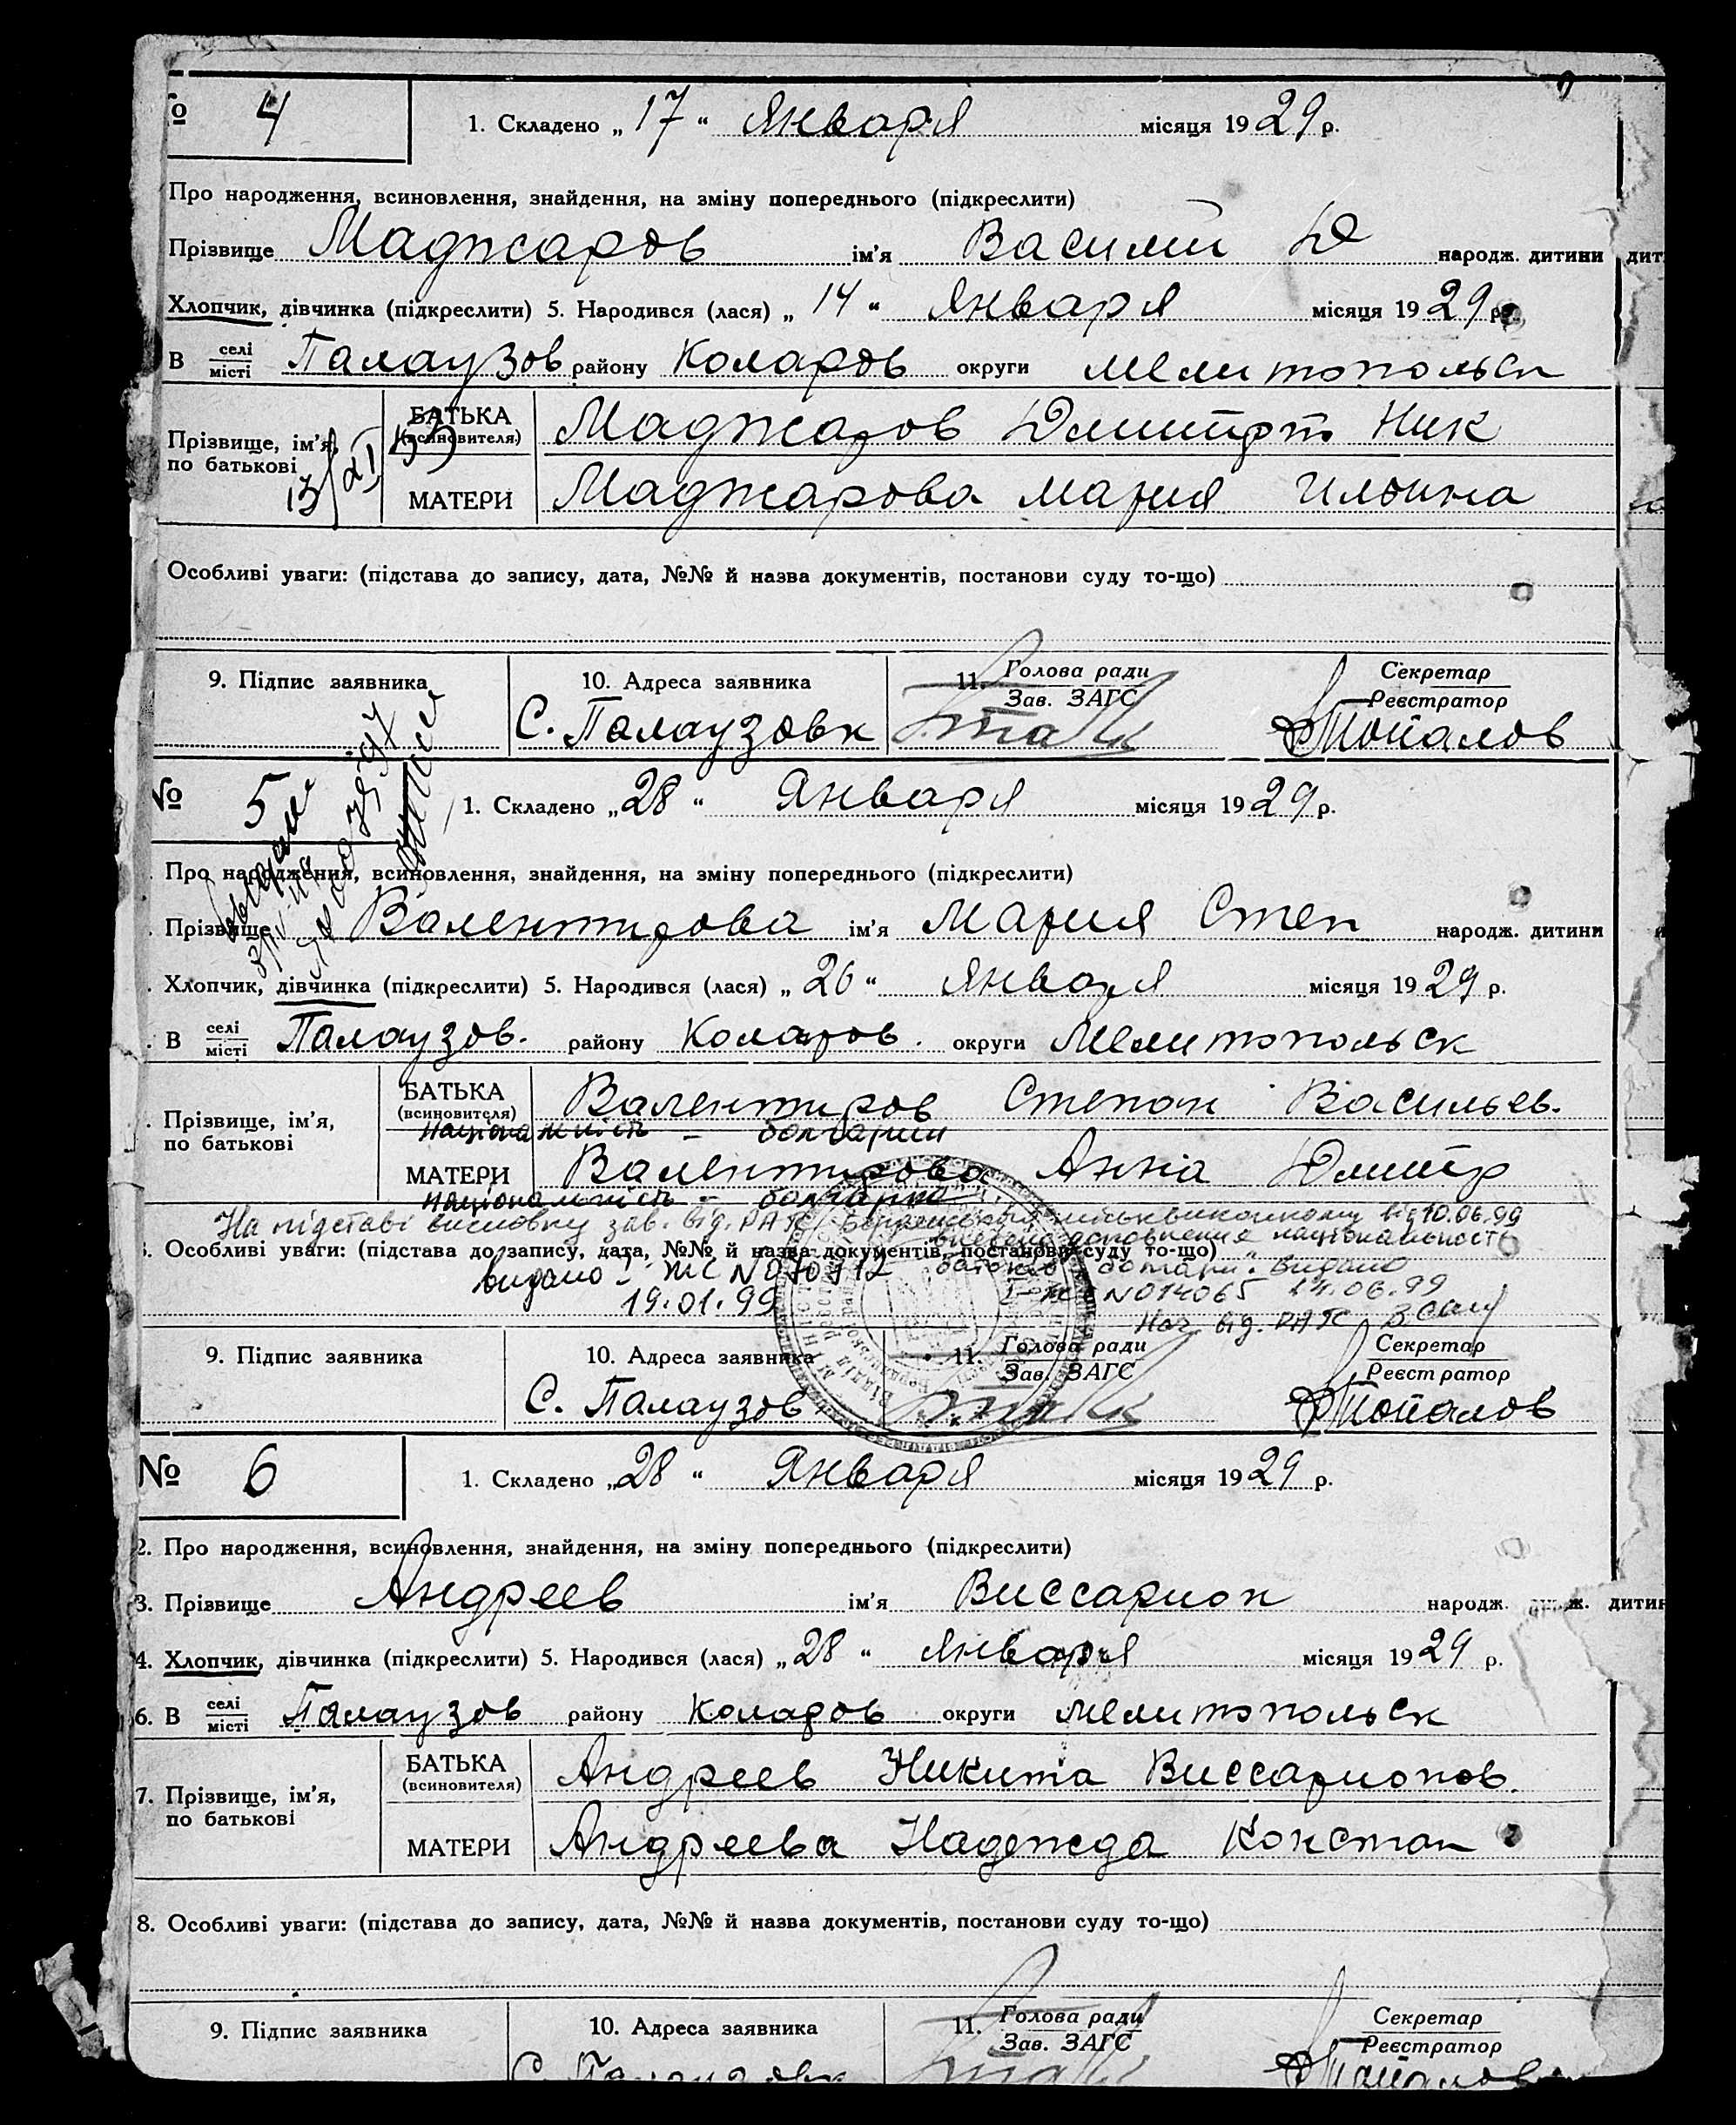 № 4
1. Складено „ 17 “ Января місяця 1929 р.
Про народження, всиновлення, знайдення, на зміну попереднього (підкреслити)
Прізвище Маджаров ім’я Василий Д народж. дитини
Хлопчик, дівчинка (підкреслити) 5. Народився (лася) „ 14 “ Января місяця 1929 р.
В селі місті Палаузов району Коларов округи Мелитопольск
Прізвище, ім’я, по батькові
БАТЬКА (всиновителя) Маджаров Дмитрт Ник
МАТЕРИ Маджарова Мария Ильина
Особливі уваги: (підстава до запису, дата, №№ й назва документів, постанови суду то-що)
9. Підпис заявника 10. Адреса заявника 11. Голова ради Зав. ЗАГС Секретар Реєстратор
С. Палаузовк Топалов
№ 5
1. Складено „ 28 “ Января місяця 1929 р.
Про народження, всиновлення, знайдення, на зміну попереднього (підкреслити)
Прізвище Валентирова ім’я Мария Степ народж. дитини
Хлопчик, дівчинка (підкреслити) 5. Народився (лася) „ 26 “ Января місяця 1929 р.
В селі місті Палаузов. району Коларов. округи Мелитопольск
Прізвище, ім’я, по батькові
БАТЬКА (всиновителя) Валентиров Степан Васильев.
Національність – болгарин
МАТЕРИ Валентирова Анна Дмитр
національність – болгарка
На підставі висновку зав. від. РАГС Бердянського міськвиконкому від 10.06.99
внесено доповнення національность
Особливі уваги: (підстава до запису, дата, №№ й назва документів, постанови суду то-що)
батьків болгари. Видано
видано І-ЖС N 070712
N 014065 14.06.99
19.01.99
Нач. від. РАГС
9. Підпис заявника 10. Адреса заявника 11. Голова ради Зав. ЗАГС Секретар Реєстратор
С. Палаузов Топалов
№ 6
1. Складено „ 28 “ Января місяця 1929 р.
2. Про народження, всиновлення, знайдення, на зміну попереднього (підкреслити)
3. Прізвище Андреев ім’я Виссарион народж. дитин
4. Хлопчик, дівчинка (підкреслити) 5. Народився (лася) „ 28 “ Января місяця 1929 р.
6. В селі місті Палаузов району Коларов округи Мелитопольск
7. Прізвище, ім’я, по батькові
БАТЬКА (всиновителя) Андреев Никита Виссарионов.
МАТЕРИ Андреева Надежда Констан
8. Особливі уваги: (підстава до запису, дата, №№ й назва документів, постанови суду то-що)
9. Підпис заявника 10. Адреса заявника 11. Голова ради Зав. ЗАГС Секретар Реєстратор
С. Палаузовк Топалов